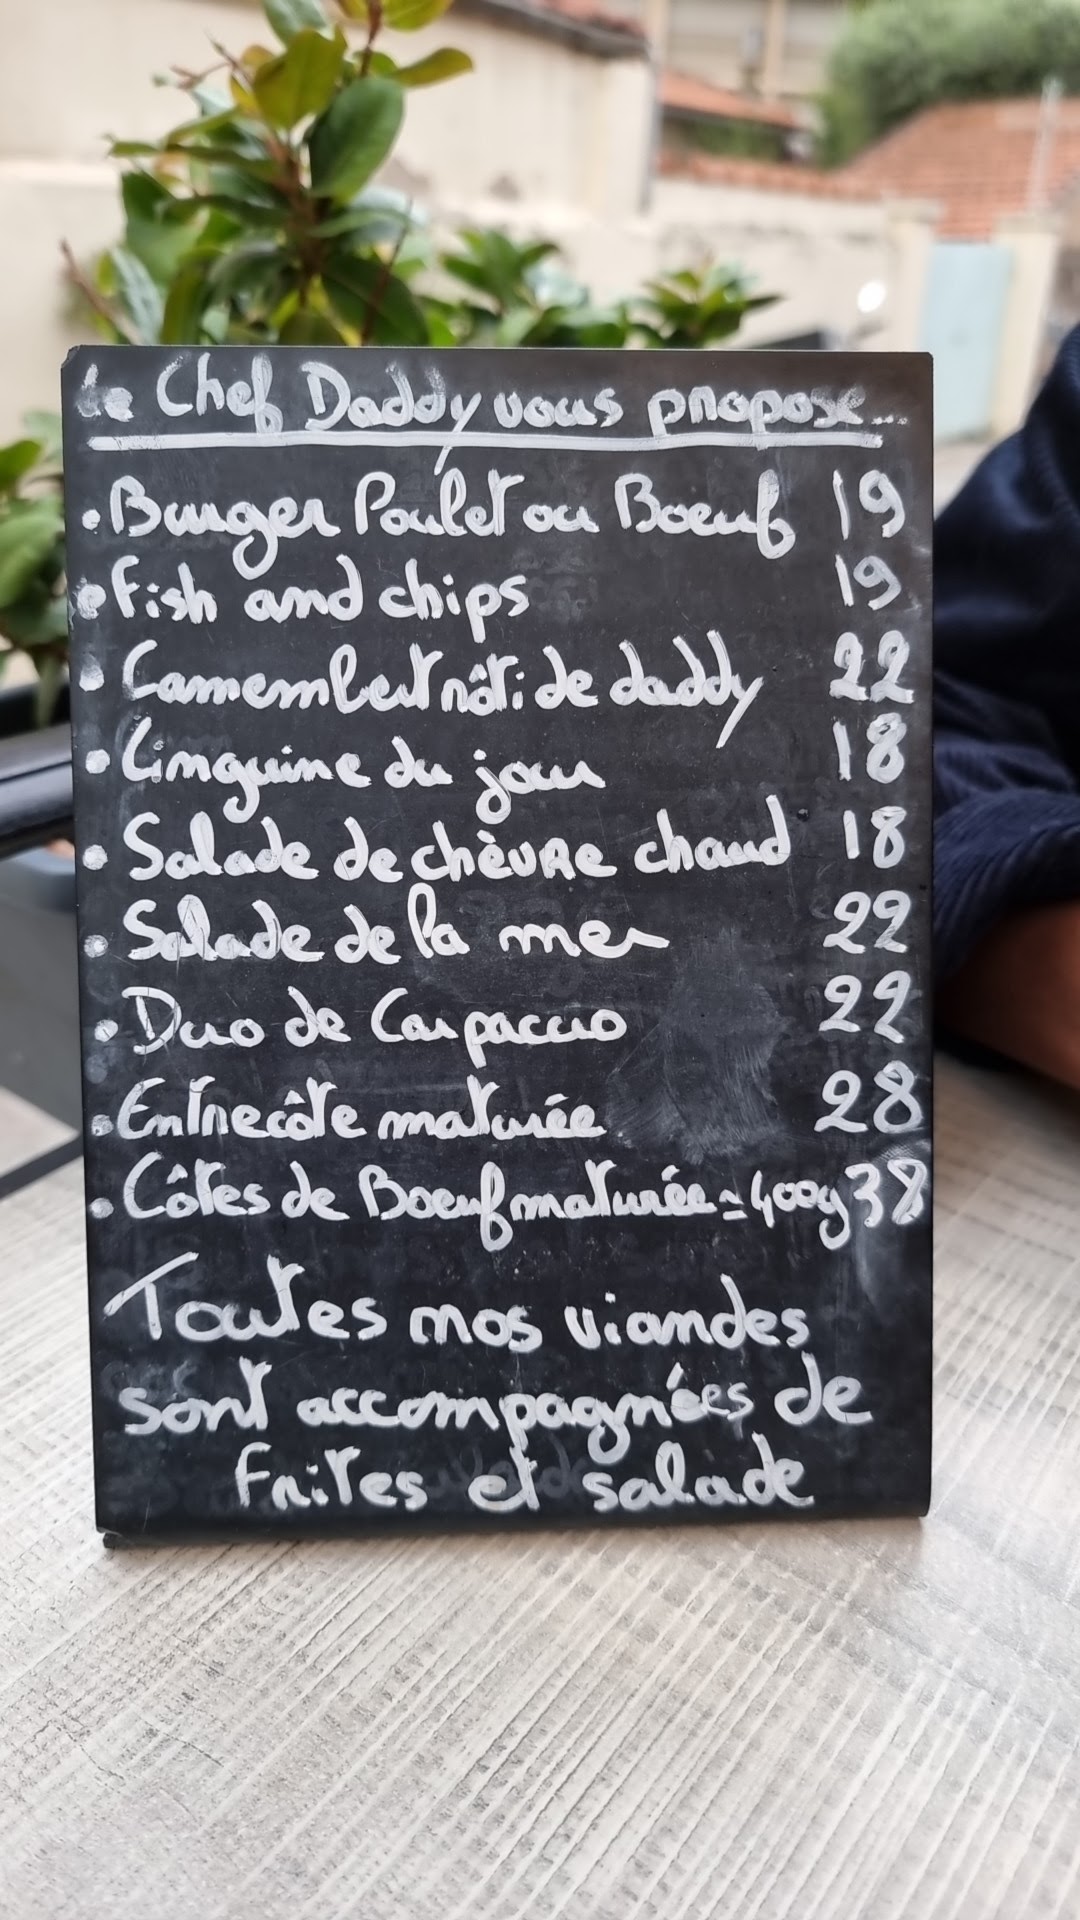 Le Chef Daddy vous propose...
• Burger Poulet ou Boeuf 19
• Fish and chips 19
• Camembert rôti de daddy 22
• Linguine du jour 18
• Salade de chèvre chaud 18
• Salade de la mer 22
• Duo de Carpaccio 22
• Entrecôte maturée 28
• Côtes de Boeuf maturée ≃ 400g 38
Toutes nos viandes
sont accompagnées de
frites et salade